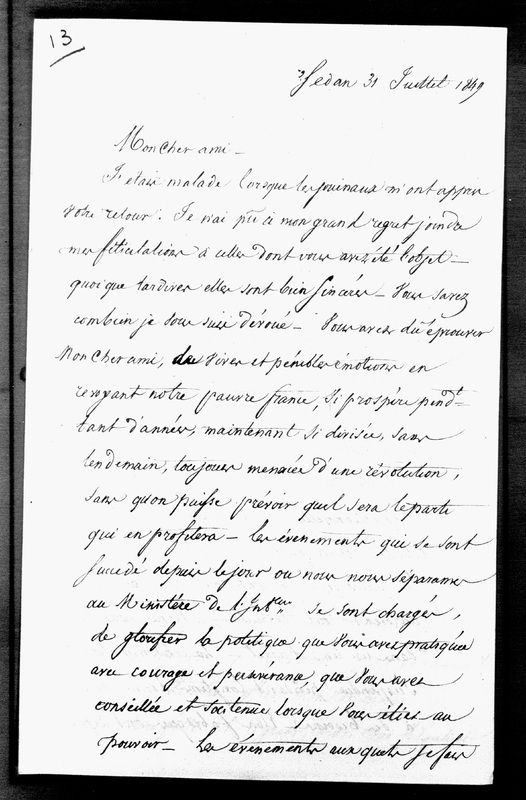 13
Sedan 31 Juillet 1849
Mon cher ami –
J'étais malade lorsque les journaux m'ont appris
votre retour. Je n'ai pû à mon grand regret joindre
mes félicitations à celles dont vous avez été l'objet –
quoique tardives elles sont bien sincères – Vous savez
combien je vous suis dévoué – Vous avez dû éprouver
Mon cher ami, de vives et pénibles émotions en
revoyant notre pauvre france, si prospère pendt
tant d'années, maintenant si divisée, sans
lendemain, toujours menacée d'une révolution,
sans qu'on puisse prévoir quel sera le parti
qui en profitera – les évènements qui se sont
succédé depuis le jour ou nous nous séparames
au Ministère de l'Intérieur se sont chargés,
de glorifier la politique que vous avez pratiquée
avec courage et persévérance, que vous avez
conseillée et soutenue lorsque vous étiez au
pouvoir – Les évènements auxquels je fais